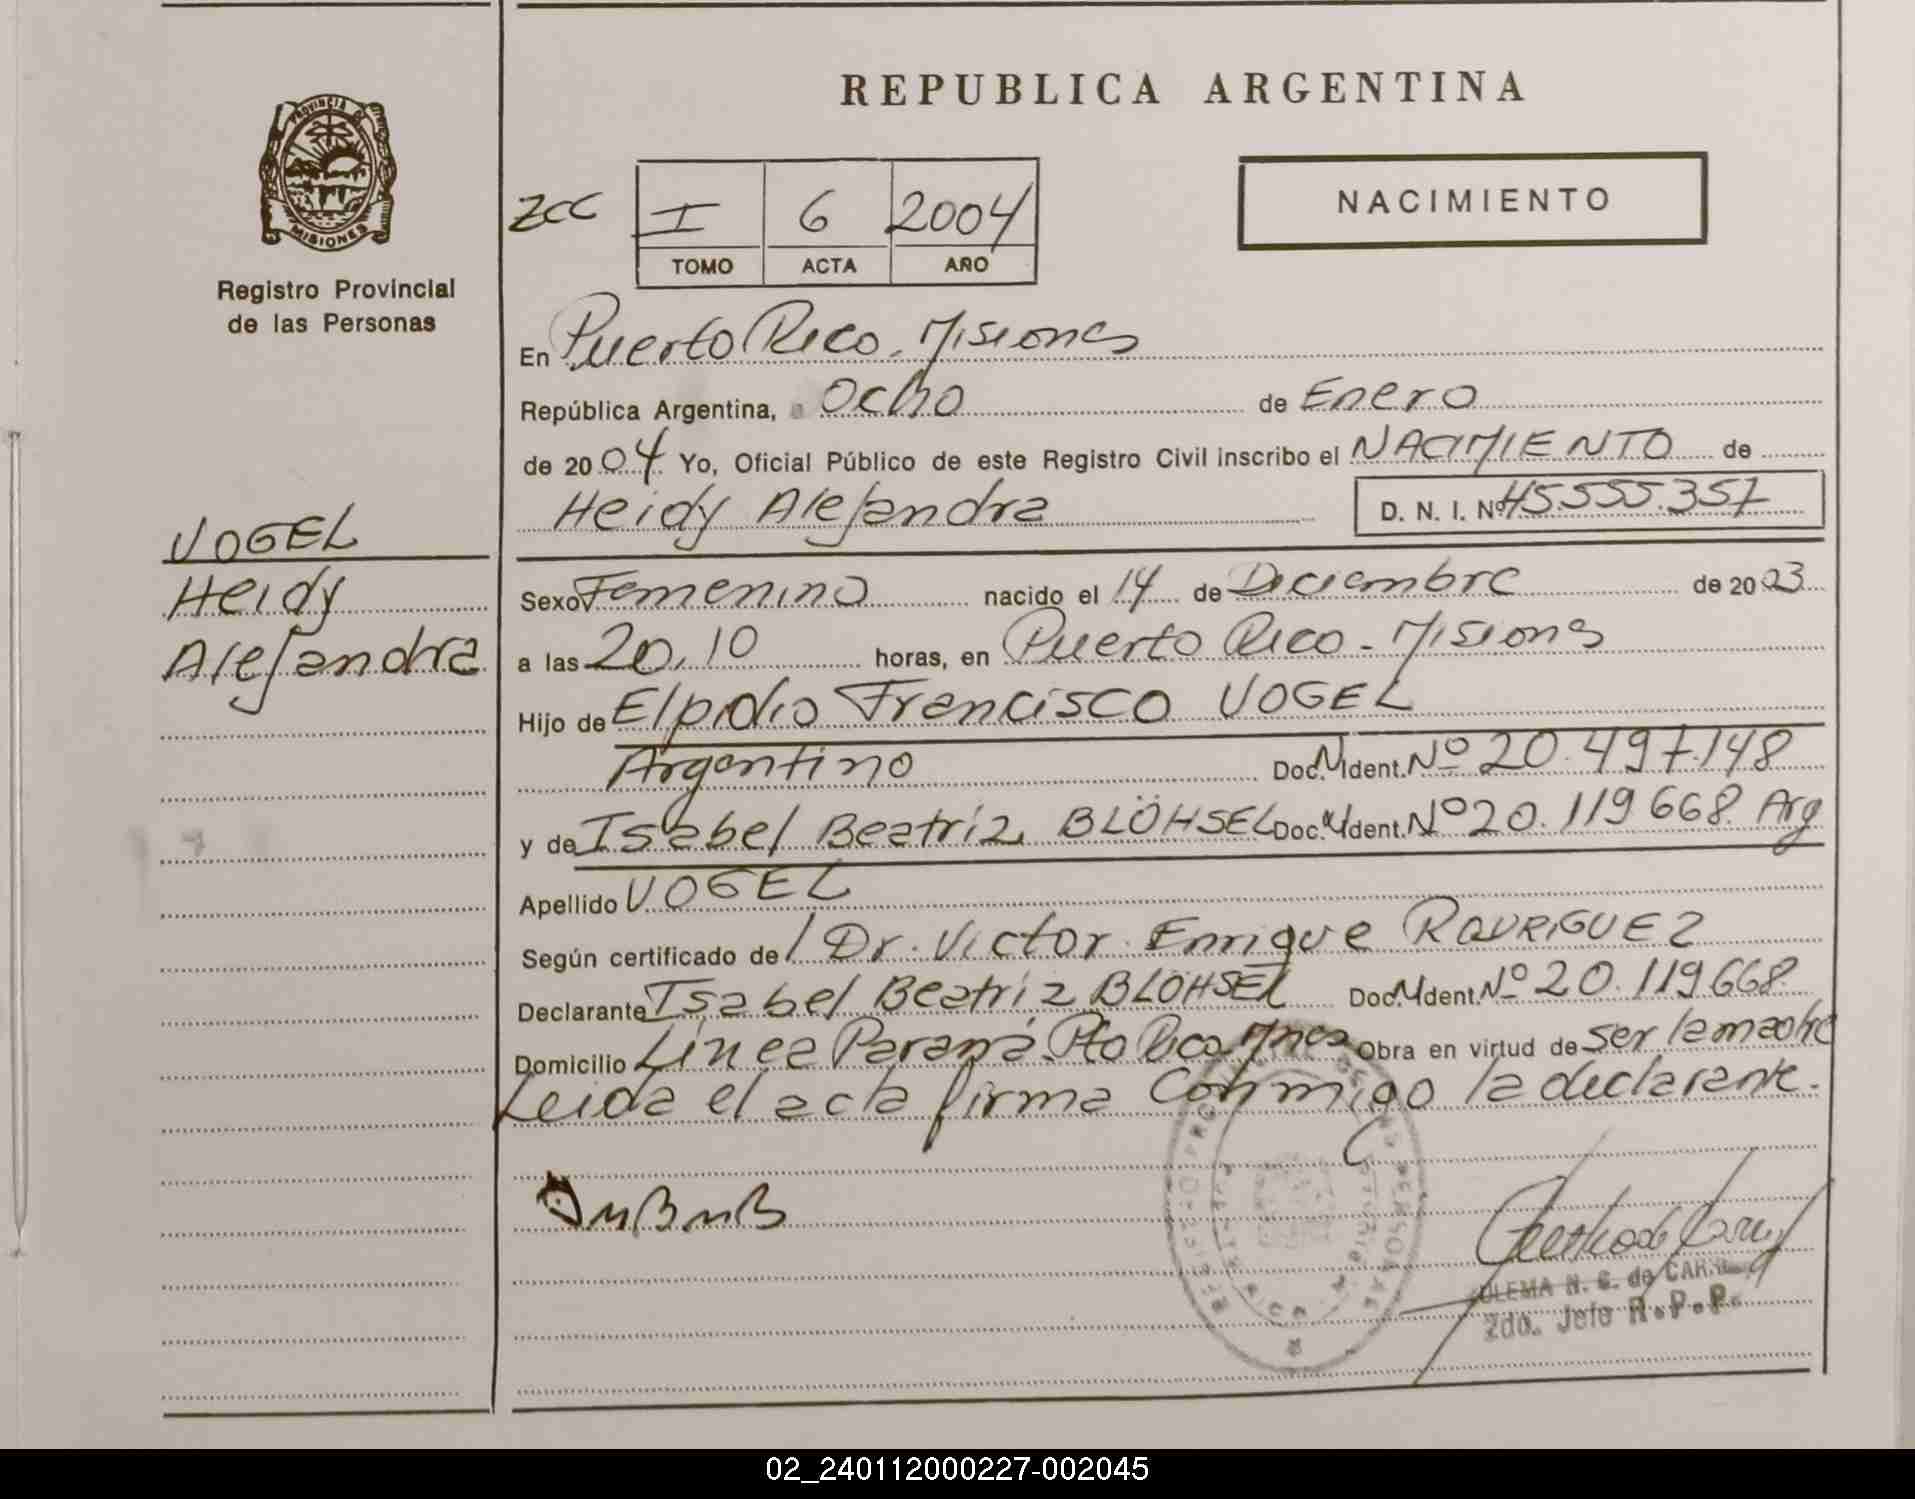 REPUBLICA ARGENTINA
PROVINCIA DE
MISIONES
Registro Provincial
de las Personas
NACIMIENTO
zcc I 6 2004
TOMO ACTA AÑO
En Puerto Rico. Misiones
República Argentina, a ocho de Enero
de 2004 Yo, Oficial Público de este Registro Civil inscribo el NACIMIENTO de
Heidy Alejandra D. N. I. Nº 45.555.357
VOGEL
Heidy
Alejandra
Sexo Femenino nacido el 14 de Diciembre de 2003
a las 20.10 horas, en Puerto Rico - Misiones
Hijo de Elpidio Francisco VOGEL
Argentino Doc. N. Ident. Nº 20.497.148
y de Isabel Beatriz BLÖHSEL Doc. N. Ident. Nº 20.119668. Arg
Apellido VOGEL
Según certificado de / Dr. Victor Enrique RODRIGUEZ
Declarante Isabel Beatriz BLÖHSEL Doc. N. Ident. Nº 20.119668.
Domicilio Línea Paraná. Pto Rico Mnes Obra en virtud de ser la madre
Leída el acta firma conmigo la declarante.
N. C. de
2do. Jefe R.P.P.
02_240112000227-002045